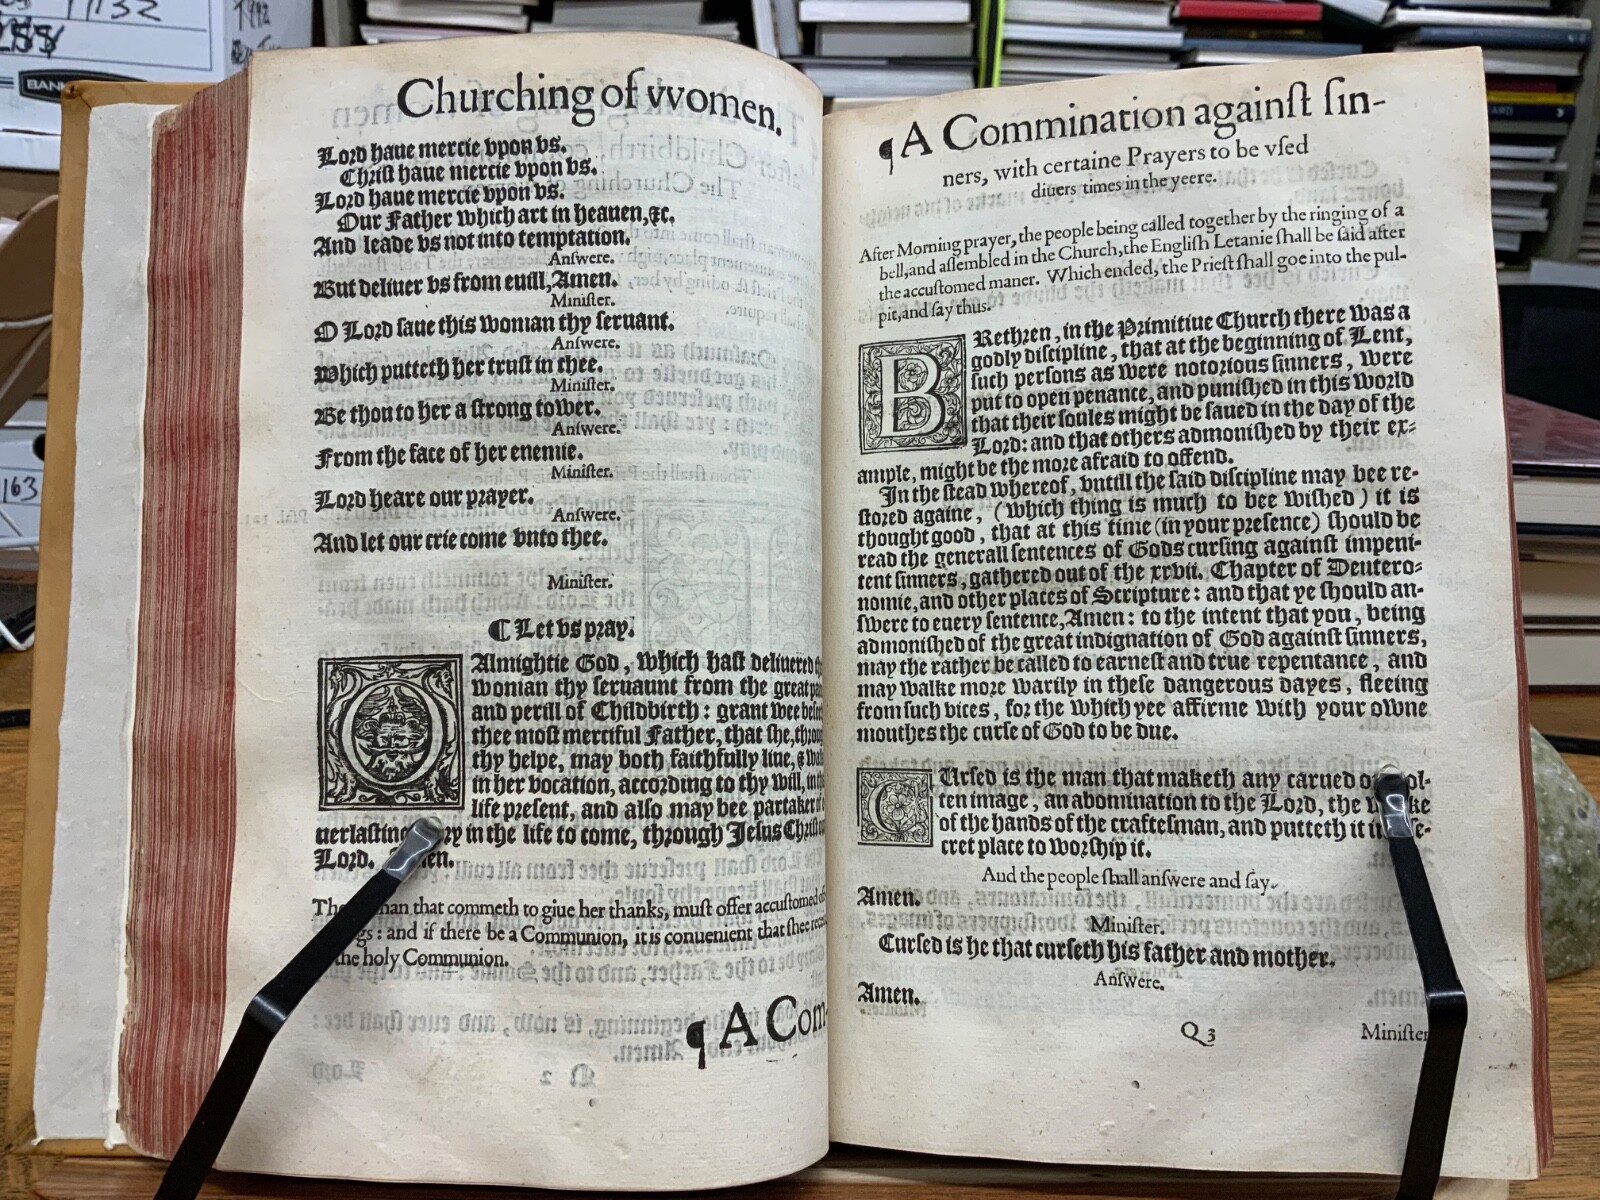 1992
1132
BANK
163
Churching of vvomen.
Lord haue mercie vpon vs.
Christ haue mercie vpon vs.
Lord haue mercie vpon vs.
Our Father which art in heauen, &c.
And leade vs not into temptation.
Anſwere.
But deliuer vs from euill, Amen.
Miniſter.
O Lord ſaue this woman thy ſeruant.
Anſwere.
Which putteth her truſt in thee.
Miniſter.
Be thou to her a ſtrong tower.
Anſwere.
From the face of her enemie.
Miniſter.
Lord heare our prayer.
Anſwere.
And let our crie come vnto thee.
Miniſter.
¶ Let vs pray.
O Almightie God, which haſt deliuered
woman thy ſeruaunt from the great
and perill of Childbirth: grant wee
thee moſt merciful Father, that ſhe,
thy helpe, may both faithfully liue, &
in her vocation, according to thy will, in
life preſent, and alſo may bee partaker
uerlaſting in the life to come, through Jeſus
Lord.
man that commeth to giue her thanks, muſt offer accuſtomed
: and if there be a Communion, it is conuenient that ſhee
the holy Communion.
¶ A Com-
¶ A Commination againſt ſin-
ners, with certaine Prayers to be vſed
diuers times in the yeere.
After Morning prayer, the people being called together by the ringing of a
bell, and aſſembled in the Church, the Engliſh Letanie ſhall be ſaid after
the accuſtomed maner. Which ended, the Prieſt ſhall goe into the pul-
pit, and ſay thus.
BRethren, in the Primitiue Church there was a
godly diſcipline, that at the beginning of Lent,
ſuch perſons as were notorious ſinners, were
put to open penance, and puniſhed in this world
that their ſoules might be ſaued in the day of the
Lord: and that others admoniſhed by their ex-
ample, might be the more afraid to offend.
In the ſtead whereof, vntill the ſaid diſcipline may bee re-
ſtored againe, (which thing is much to bee wiſhed) it is
thought good, that at this time (in your preſence) ſhould be
read the generall ſentences of Gods curſing againſt impeni-
tent ſinners, gathered out of the xxvii. Chapter of Deutero-
nomie, and other places of Scripture: and that ye ſhould an-
ſwere to euery ſentence, Amen: to the intent that you, being
admoniſhed of the great indignation of God againſt ſinners,
may the rather be called to earneſt and true repentance, and
may walke more warily in theſe dangerous dayes, fleeing
from ſuch vices, for the which yee affirme with your owne
mouthes the curſe of God to be due.
CUrſed is the man that maketh any carued
ten image, an abomination to the Lord, the
of the hands of the crafteſman, and putteth it
cret place to worſhip it.
And the people ſhall anſwere and ſay.
Amen.
Miniſter.
Curſed is he that curſeth his father and mother.
Anſwere.
Amen.
Q 3
Miniſter